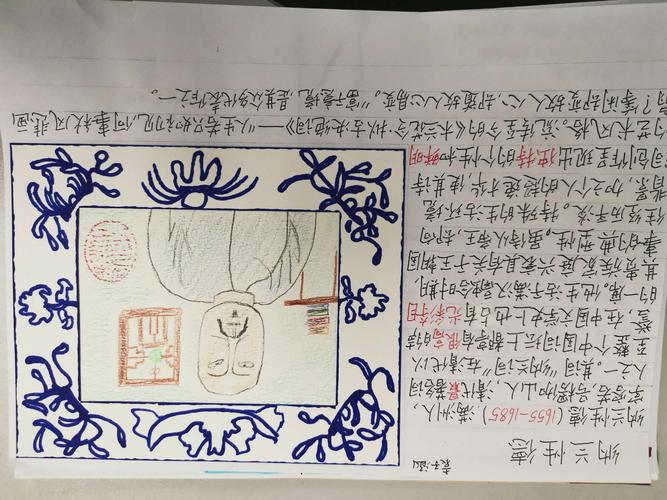 纳兰性德
纳兰性德(1655-1685),满洲人,
字容若,号楞伽山人,清代最著名词
人之一。其诗词“纳兰词”在清代以
至整个中国词坛上都享有很高的声
誉,在中国文学史上也占有光彩夺目
的一席。他生活于满汉融合时期,
其贵族家庭兴衰具有关于王朝国
事的典型性。虽侍从帝王,却向
往经历平淡。特殊的生活环境
背景,加之个人的超逸才华,使其诗
词创作呈现出独特的个性和鲜明
的艺术风格。流传至今的《木兰花令·拟古决绝词》——“人生若只如初见,何事秋风悲画
扇?等闲却变故人心,却道故人心易变。”富于意境,是其众多代表作之一。